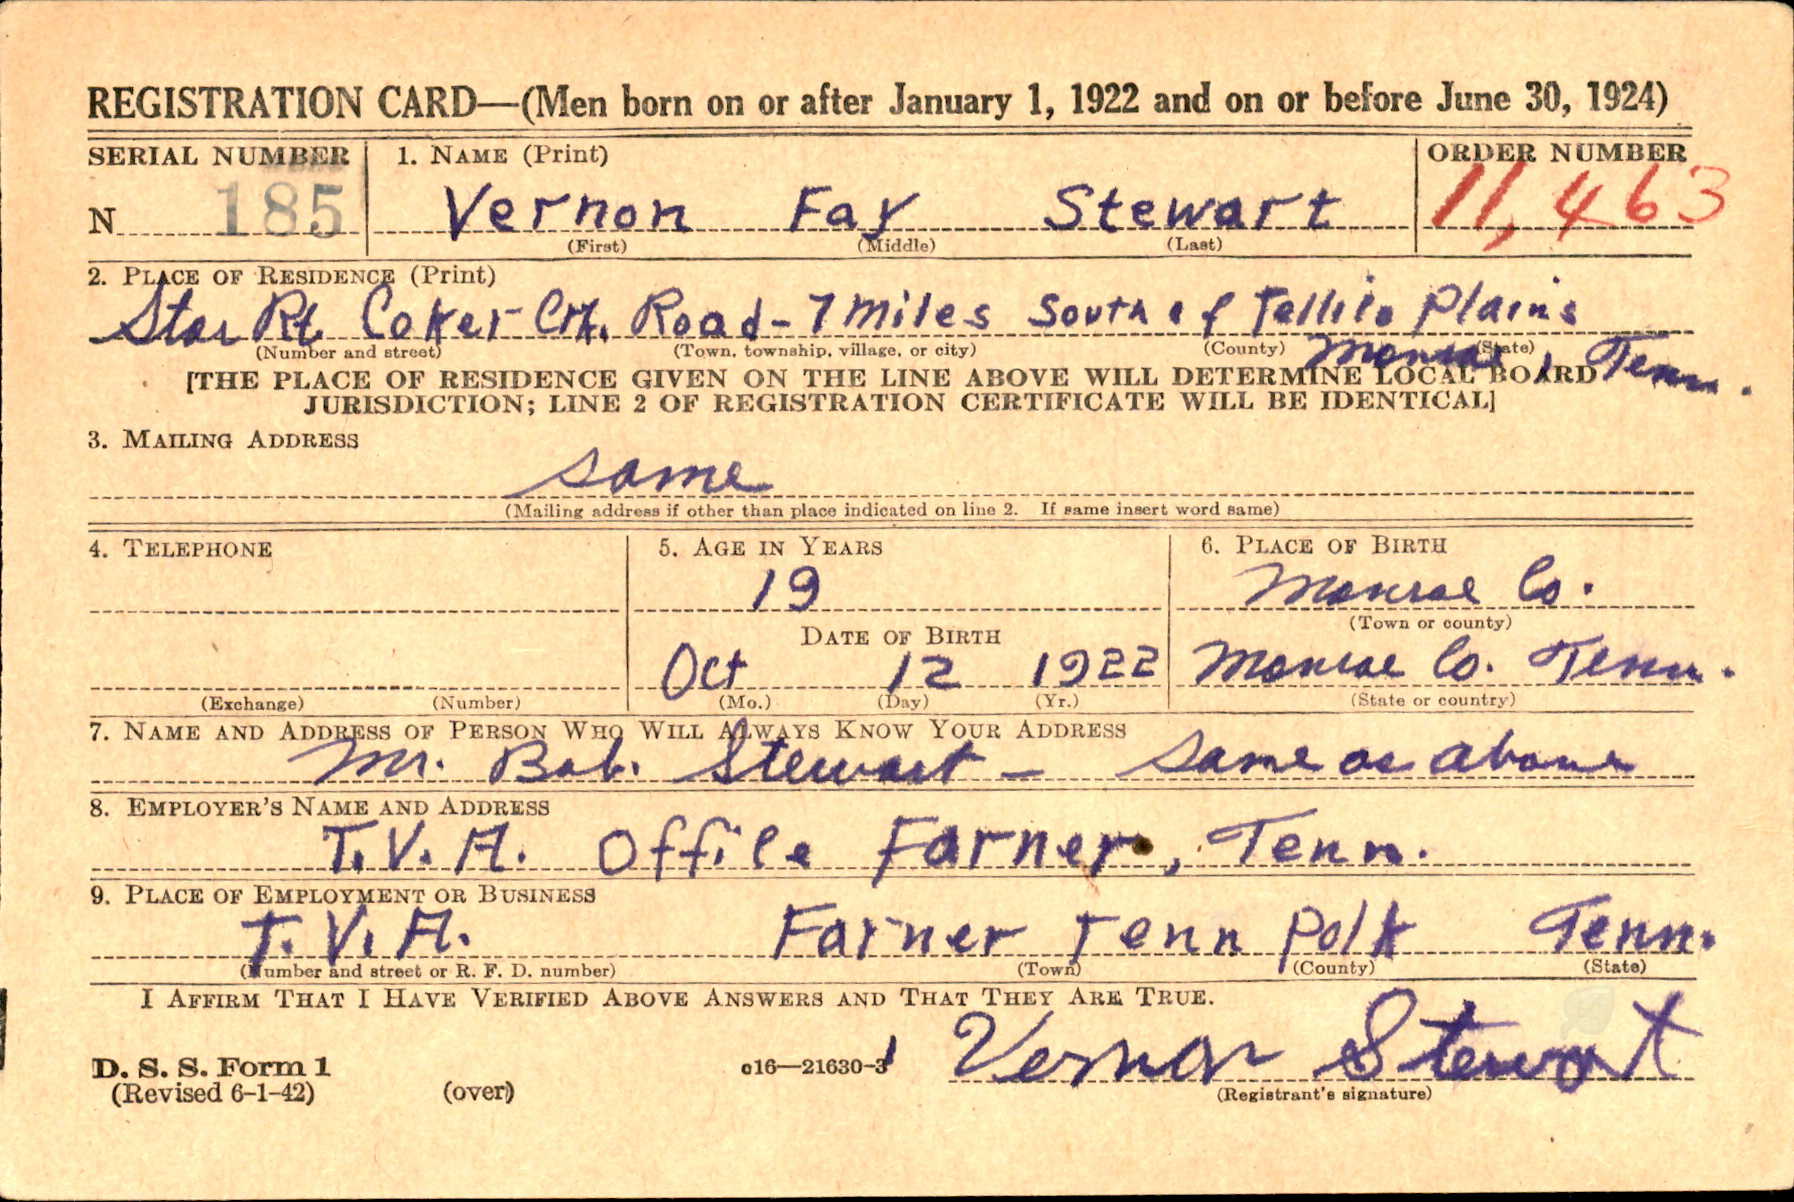 REGISTRATION CARD—(Men born on or after January 1, 1922 and on or before June 30, 1924)
SERIAL NUMBER 1. NAME (Print) ORDER NUMBER
N 185 Vernon Fay Stewart 11,463
(First) (Middle) (Last)
2. PLACE OF RESIDENCE (Print)
Star Rt. Coker Crk. Road - 7 miles South of Tellico Plains
(Number and street) (Town, township, village, or city) (County) (State)
Monroe, Tenn.
[THE PLACE OF RESIDENCE GIVEN ON THE LINE ABOVE WILL DETERMINE LOCAL BOARD
JURISDICTION; LINE 2 OF REGISTRATION CERTIFICATE WILL BE IDENTICAL]
3. MAILING ADDRESS
same
(Mailing address if other than place indicated on line 2. If same insert word same)
4. TELEPHONE 5. AGE IN YEARS 6. PLACE OF BIRTH
19 Monroe Co.
(Town or county)
DATE OF BIRTH
Oct 12 1922 Monroe Co. Tenn.
(Exchange) (Number) (Mo.) (Day) (Yr.) (State or country)
7. NAME AND ADDRESS OF PERSON WHO WILL ALWAYS KNOW YOUR ADDRESS
Mr. Bob. Stewart - Same as above
8. EMPLOYER'S NAME AND ADDRESS
T.V.A. Office Farner, Tenn.
9. PLACE OF EMPLOYMENT OR BUSINESS
T.V.A. Farner Tenn Polk Tenn.
(Number and street or R. F. D. number) (Town) (County) (State)
I AFFIRM THAT I HAVE VERIFIED ABOVE ANSWERS AND THAT THEY ARE TRUE.
D. S. S. Form 1
(Revised 6-1-42) (over) c16—21630-3 Vernon Stewart
(Registrant's signature)